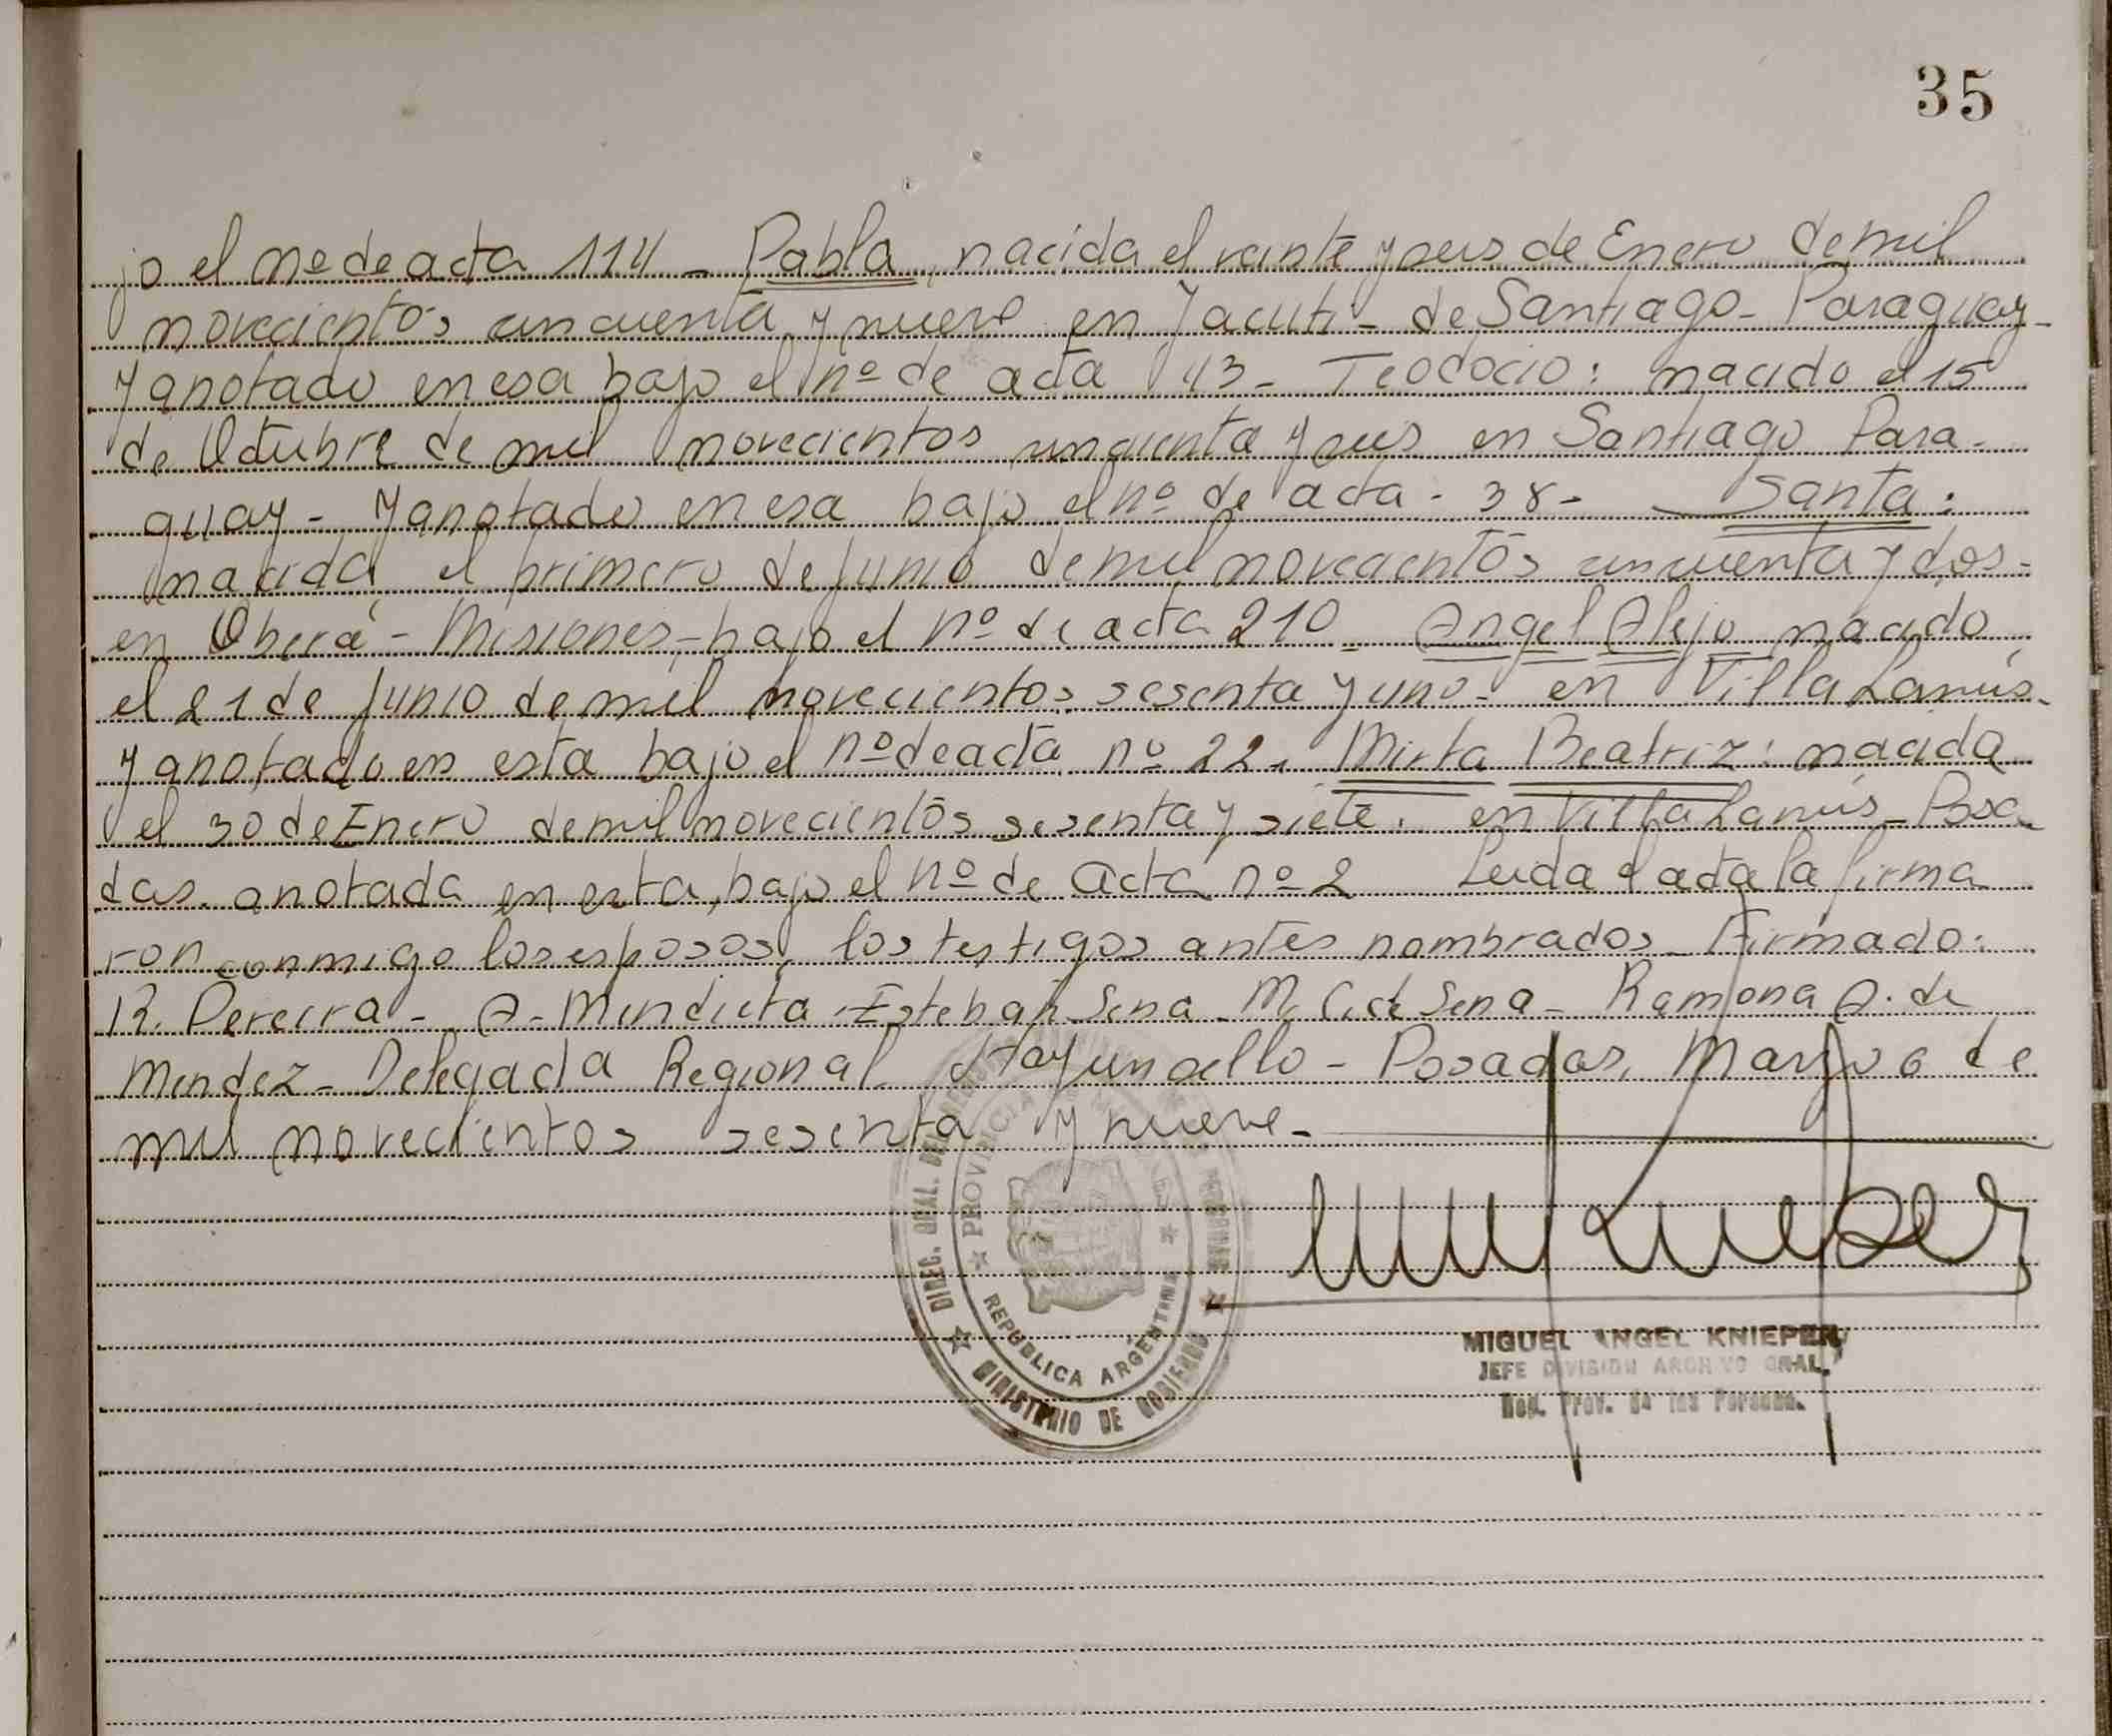 35
jo el nº de acta 114 - Pabla, nacida el veinte y seis de Enero de mil
novecientos cincuenta y nueve en Yacuti - de Santiago - Paraguay -
y anotado en esa bajo el nº de acta 43 - Teodocio: nacido el 15
de Octubre de mil novecientos cincuenta y seis en Santiago Para-
guay - y anotado en esa bajo el nº de acta - 38 - Santa:
nacida el primero de Junio de mil novecientos cincuenta y dos -
en Oberá - Misiones, - bajo el nº de acta 210 - Angel Alejo nacido
el 21 de Junio de mil novecientos sesenta y uno - en Villa Lanús -
y anotado en esta bajo el nº de acta nº 22. Mirta Beatriz: nacida
el 30 de Enero de mil novecientos sesenta y siete. en Villa Lanús - Posa-
das. anotada en esta, bajo el nº de acta nº 2 Leida el acta la firma
ron conmigo los esposos, los testigos antes nombrados - Firmado:
R. Pereira - A - Mendieta - Esteban Sena - M. C. de Sena - Ramona A. de
Mendez - Delegada Regional - Posadas, Marzo 6 de
mil novecientos sesenta y nueve -
DIREC. GRAL. DEL
PROVINCIA
REPUBLICA ARGENTINA
MINISTERIO DE GOBIERNO
MIGUEL ANGEL KNIEPER
JEFE DIVISION ARCHIVO GRAL.
Reg. Prov. de las Personas.